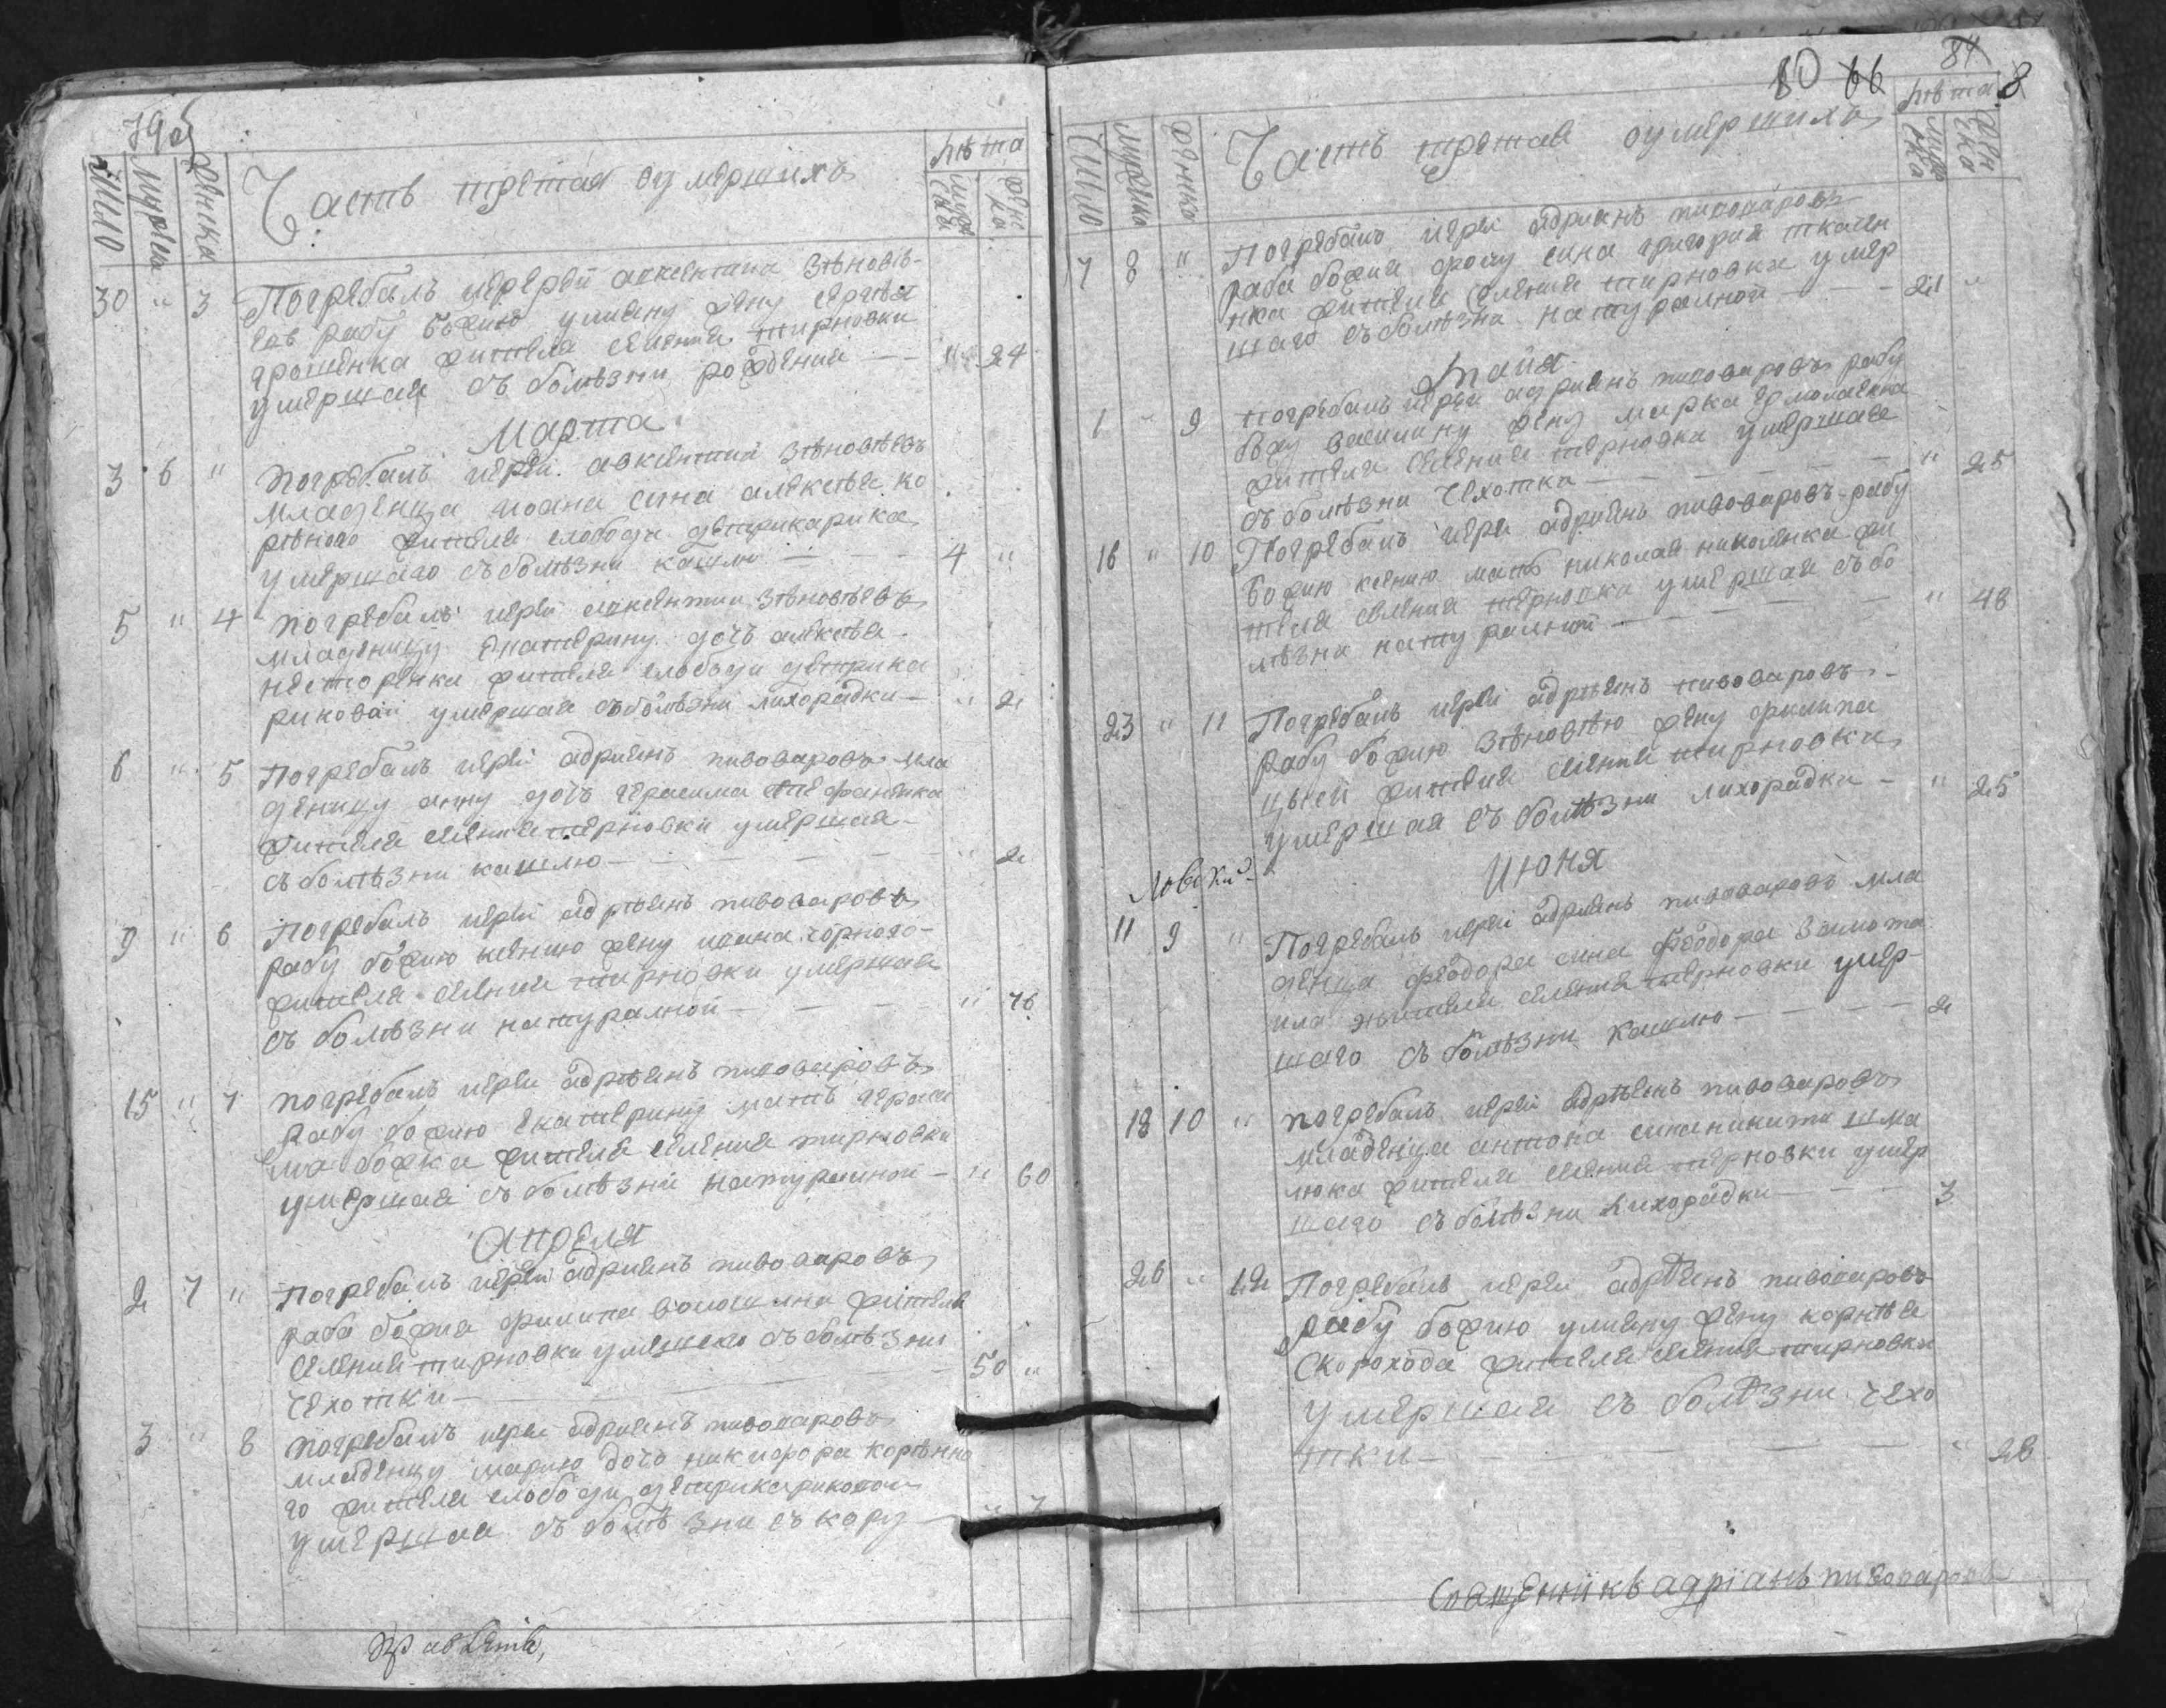 79об
Число
Мужеска
Женска
Часть третая оумершихъ
Лѣта
Мужеска
Женска
30 " 3 Погребалъ иерей авксентии Зѣновѣ-
евъ рабу божию улияну жену сергѣя
ярошенка жителя селения тирновки
умершая съ болѣзни рождения — " 24
Марта
3 6 " погребалъ иерей авксентий Зѣновѣевъ
младенца иоана сина алексѣя ко
рѣного жителя слободи дмитрикарика
умершаго съ болѣзни кашлю — 4 "
5 " 4 погребалъ иерей авксентии Зѣновѣевъ
младеницу Екатерину дочь алексѣя
несторенка жителя слободи дмитрика
риковой умершая съ болѣзни лихорадки — " 2
6 " 5 Погребалъ иерей адриянъ пивоваровъ мла
деницу анну дочь герасима стефаненка
жителя селения терновки умершая
съ болѣзни кашлю — " 2
9 " 6 Погребалъ иерей адрѣянъ пивоваровъ
рабу божию ксению жену ивана чорного
жителя селения тирновки умершая
съ болѣзни натуралной — " 76
15 " 7 погребалъ иерей адрѣянъ пивоваровъ
рабу божию екатерину мать гераси
ма божка жителя селения тирновки
умершая съ болѣзни натуралной — " 60
апреля
2 7 " Погребалъ иерей адриянъ пивоваровъ
раба божия филипа волошина жителя
селения тирновки умершаго съ болѣзни
чехотки — 50 "
3 " 8 погребалъ иерей адриянъ пивоваровъ
младенцу марию дочь никифора корѣнно
го жителя слободи дмитрикариковой
умершая съ болѣзни съ кору — "
80 66 84 8
Число
Мужеска
Женска
Часть третая оумершихъ
Лѣта
Мужеска
Женска
7 8 " Погребалъ иерей адриянъ пивоваровъ
раба божия фому сина григория ткачен
нка жителя селения тирновки умер
шаго съ болѣзни натуралной — 21 "
Майя
1 " 9 погребалъ иерей адриянъ пивоваровъ рабу
божу василину жену марка ермоленка
жителя селения терновки умершая
съ болѣзни чехотки — " 25
16 " 10 Погребалъ иерей адриянъ пивоваровъ рабу
божию ксению мать николая николенка жи
теля селения терновки умершая съ бо
лѣзни натуралной — " 48
23 " 11 Погребалъ иерей адриянъ пивоваровъ
рабу божию Зѣновѣю жену филипа
жителя селения тирновки
умершая съ болѣзни лихорадки — " 25
Июня
11 9 " Погребалъ иерей адриянъ пивоваровъ мла
денца феодора сина феодора
жителя селения терновки умер-
шаго съ болѣзни кашлю — 2
18 10 " погребалъ иерей адрѣянъ пивоваровъ
младенца антона сина никити шма
люка жителя селения терновки умер
шаго съ болѣзни лихорадки — 3
26 " 12 Погребалъ иерей адрѣянъ пивоваровъ
рабу божию улияну жену корнѣя
Скорохода жителя селения тирновки
умершая съ болѣзни чехо
тки — " 28
Священникъ адріянъ пивоваровъ